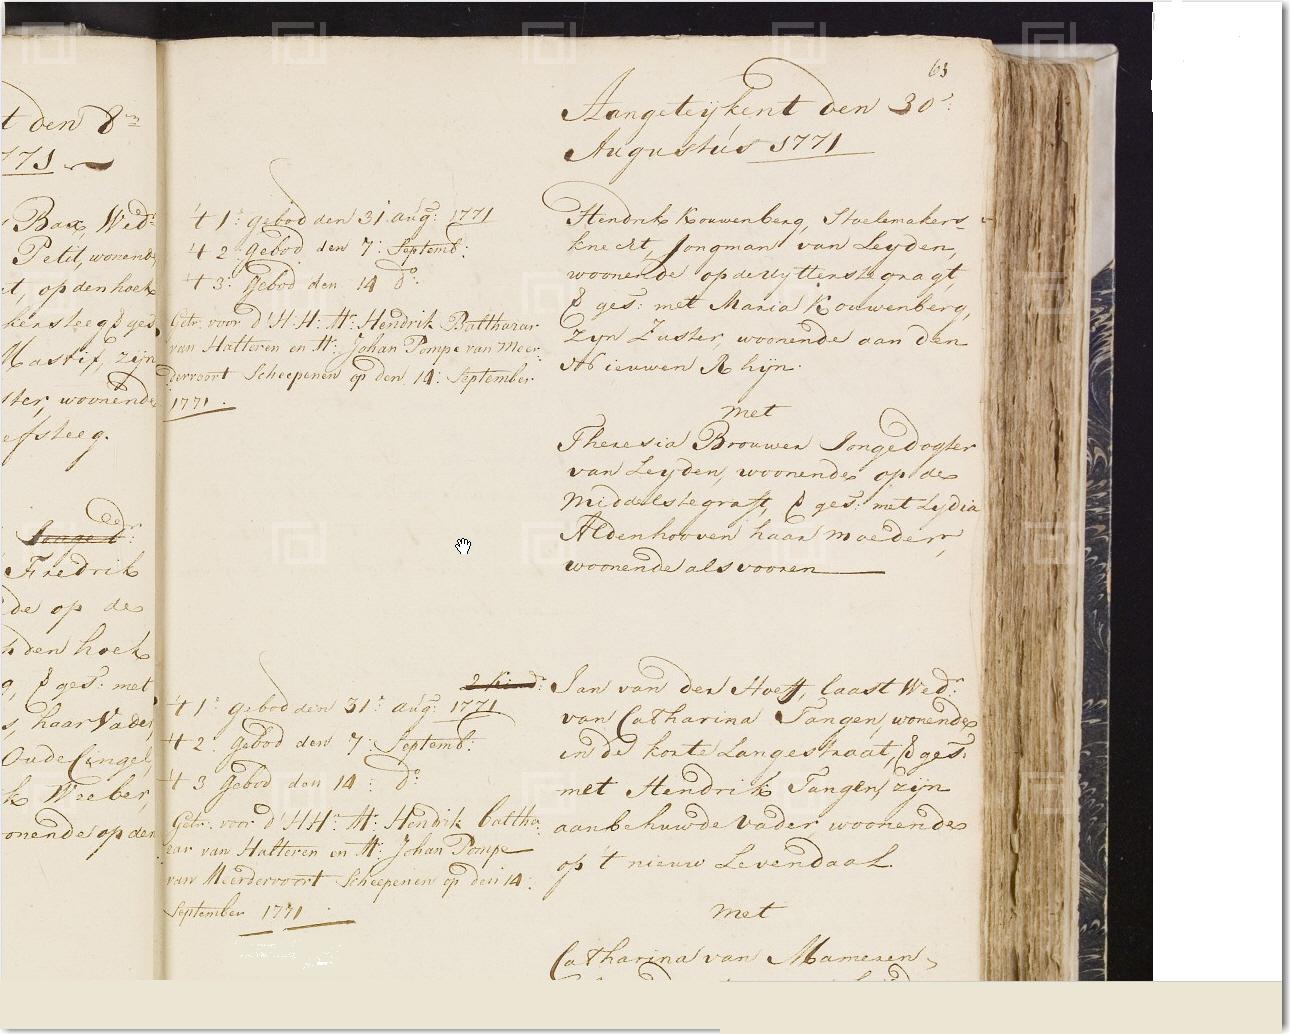 t den 8
1771
Bax, Wed
Petit, woonend
t, op den hoek
kersteeg & ges
Mastif, zyn
ster, woonende
efsteeg.
Fredrik
de op de
den hoek
, & ges: met
s, haar Vader
Oude Cingel,
k Weeber,
oonende op den
63
Aangeteijkent den 30
Augustus 1771
1: gebod den 31 aug: 1771
2 Gebod den 7: Septemb:
3: Gebod den 14 do
Getr: voor d'H:H: Mr: Hendrik Balthazar
van Halteren en Mr: Johan Pompe van Meer
dervoort Scheepenen op den 14: September
1771.
Hendrik Kouwenberg, Stoelemakers
knecht, Jongman van Leyden,
woonende op de Uytterstegragt,
& ges: met Maria Kouwenberg,
Zyn Zuster, woonende aan den
Nieuwen Rhijn.
met
Theresia Brouwer Jongedogter
van Leyden, woonende op de
Middelstegraft, & ges: met Lydia
Aldenhooven haar moeder,
woonende als vooren
2 Kind:
1: gebod den 31: aug: 1771
2: Gebod den 7: Septemb:
3 Gebod den 14: do
Getr: voor d'HH: Mr: Hendrik baltha
zar van Halteren en Mr: Johan Pompe
van Meerdervoort Scheepenen op den 14:
September 1771.
Jan van der Hoeff, laast Wed:
van Catharina Tangen, wonende
in de korte Langestraat, & ges:
met Hendrik Tangen, zijn
aanbehuwde Vader, woonende
op 't nieuw Levendaal.
met
Catharina van Mameren,